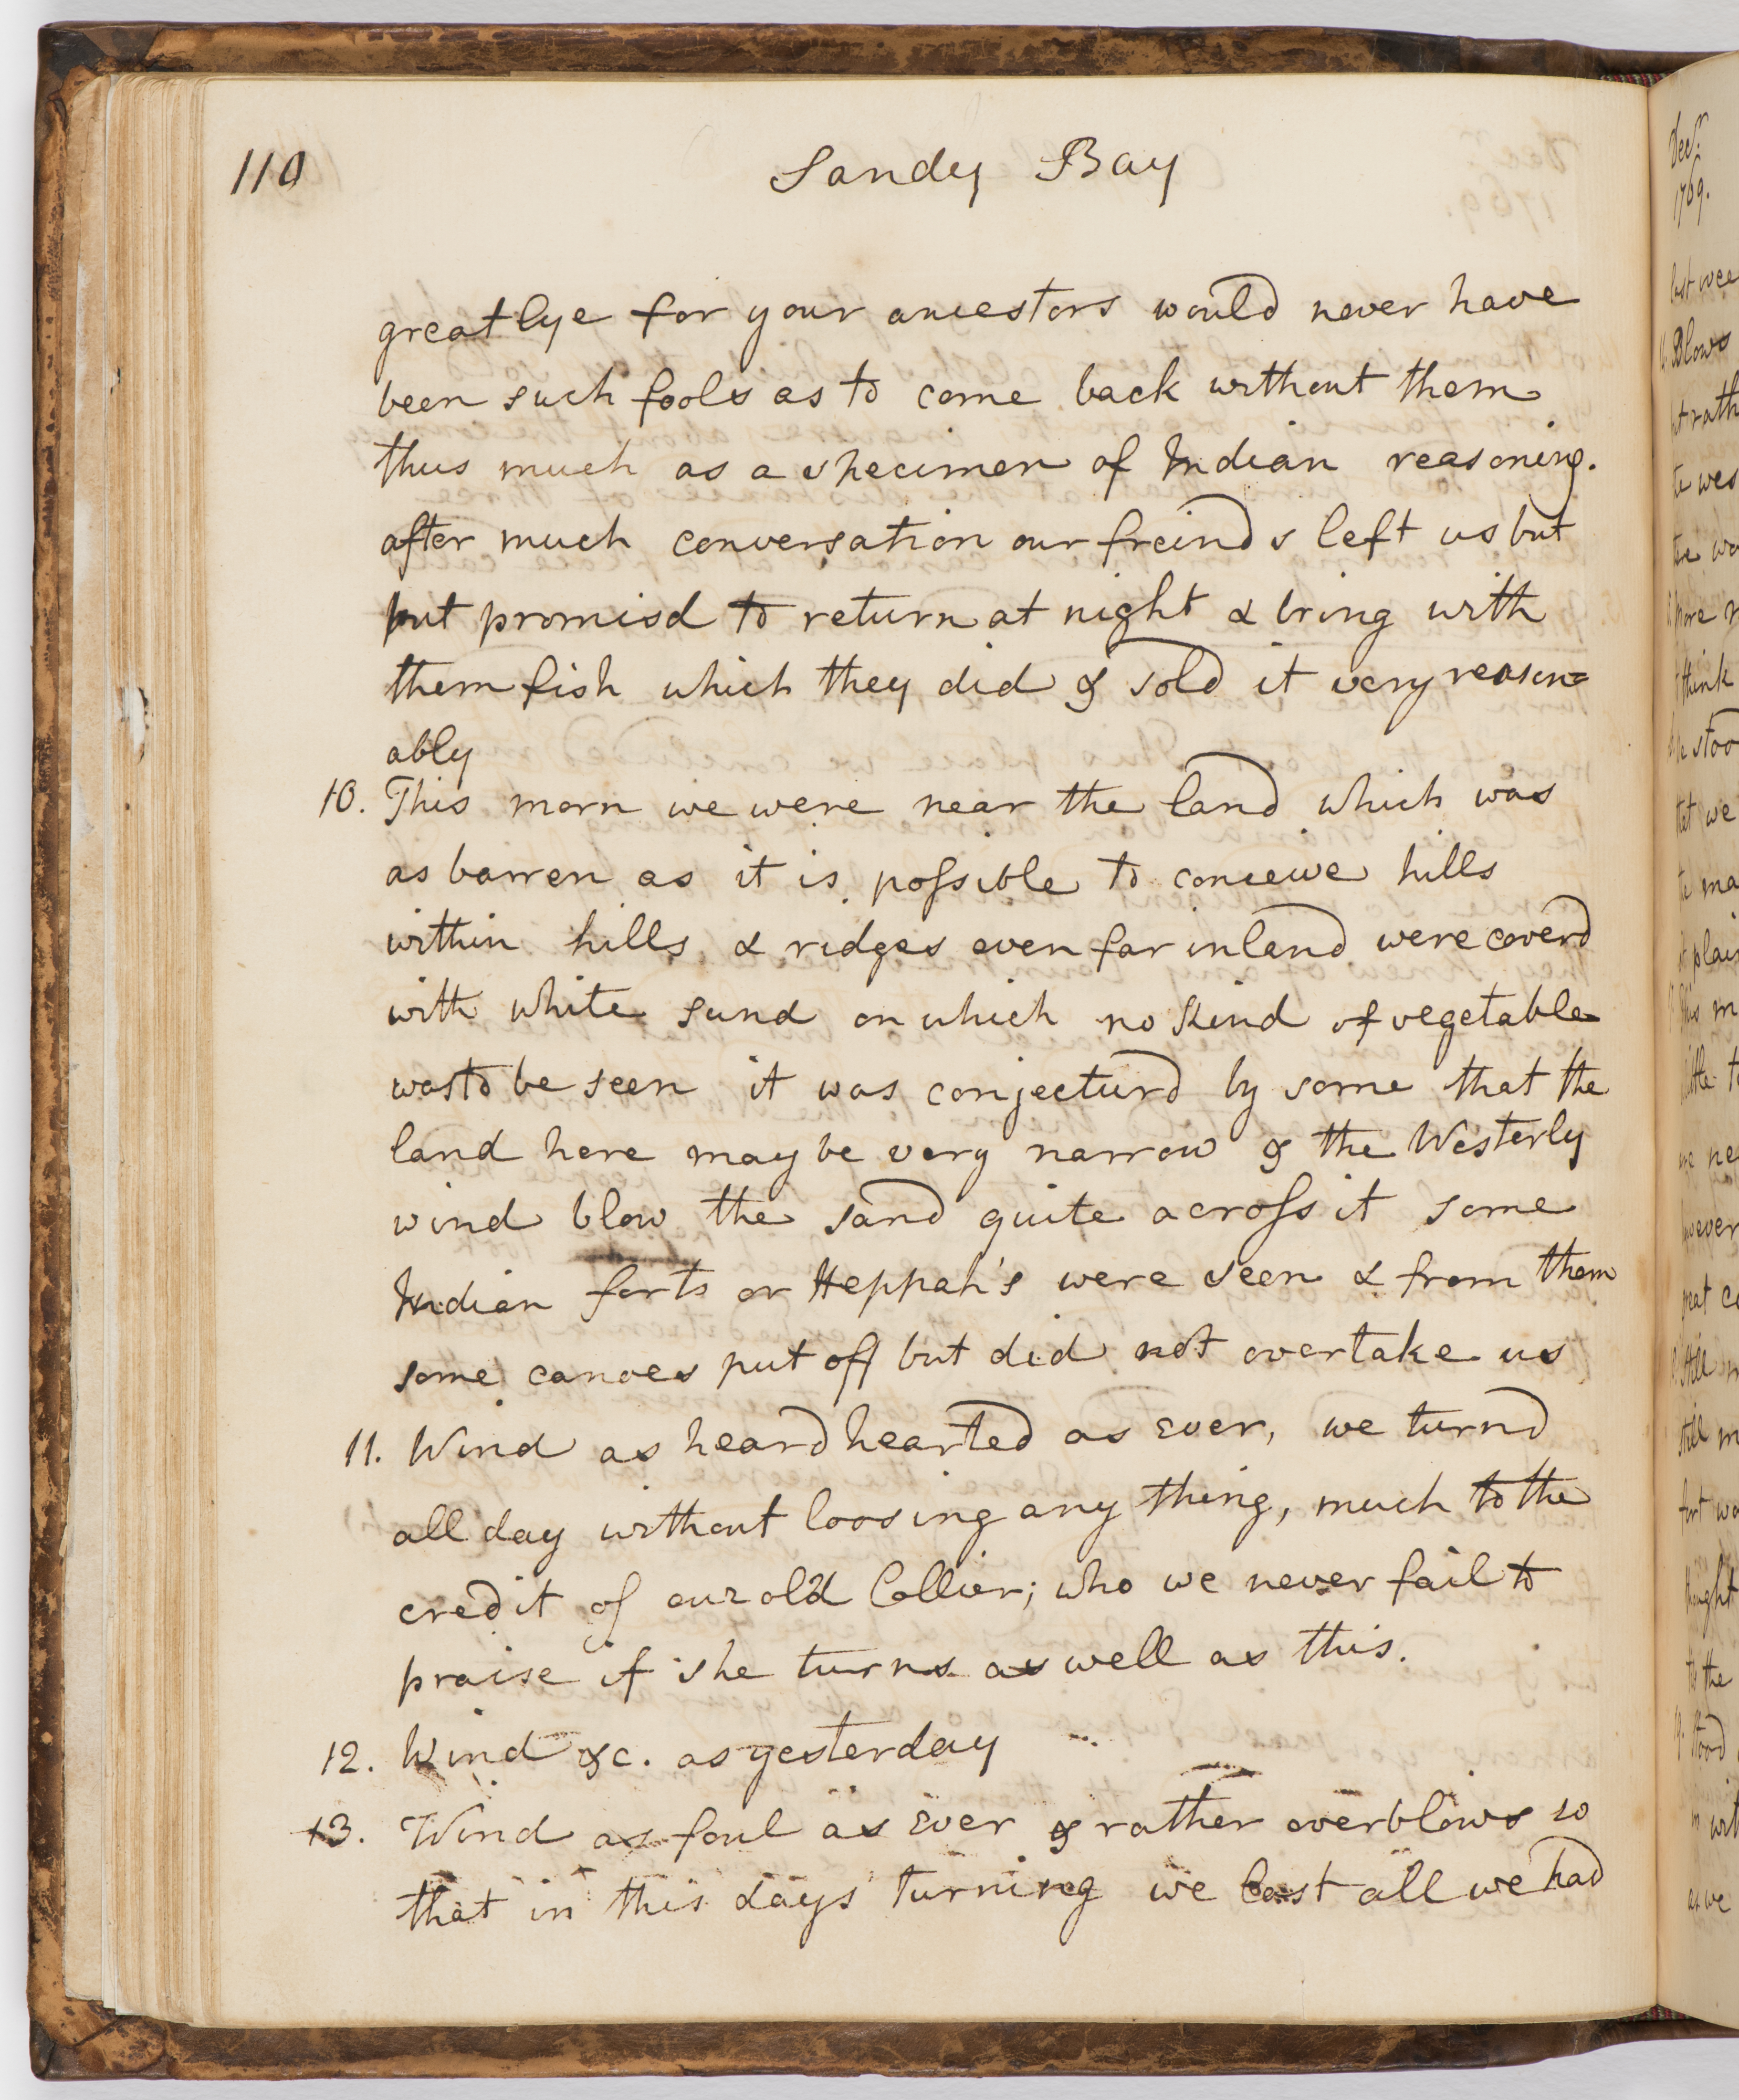 110
Sandy Bay
great lye for your ancestors would never have
been such fools as to come back without them
thus much as a specimen of Indian reasoning.
after much conversation our freinds left us but
but promisd to return at night & bring with
them fish which they did & sold it very reason=
ably
10. This morn we were near the land which was
as barren as it is possible to conceive hills
within hills & ridges even far inland were coverd
with white sand on which no kind of vegetable
was to be seen it was conjecturd by some that the
land here may be very narrow & the Westerly
wind blow the sand quite across it some
Indian forts or Heppah's were seen & from them
some canoes put off but did not overtake us
11. Wind as heard hearted as ever, we turnd
all day without loosing any thing, much to the
credit of our old Collier; who we never fail to
praise if she turns as well as this.
12. Wind &c. as yesterday
13. Wind as foul as ever & rather overblows so
that in this days turning we lost all we had
Decr
1769.
Blows
think
stood
that we
little
however
great
Still
still m
thought
to the
Stood
as we